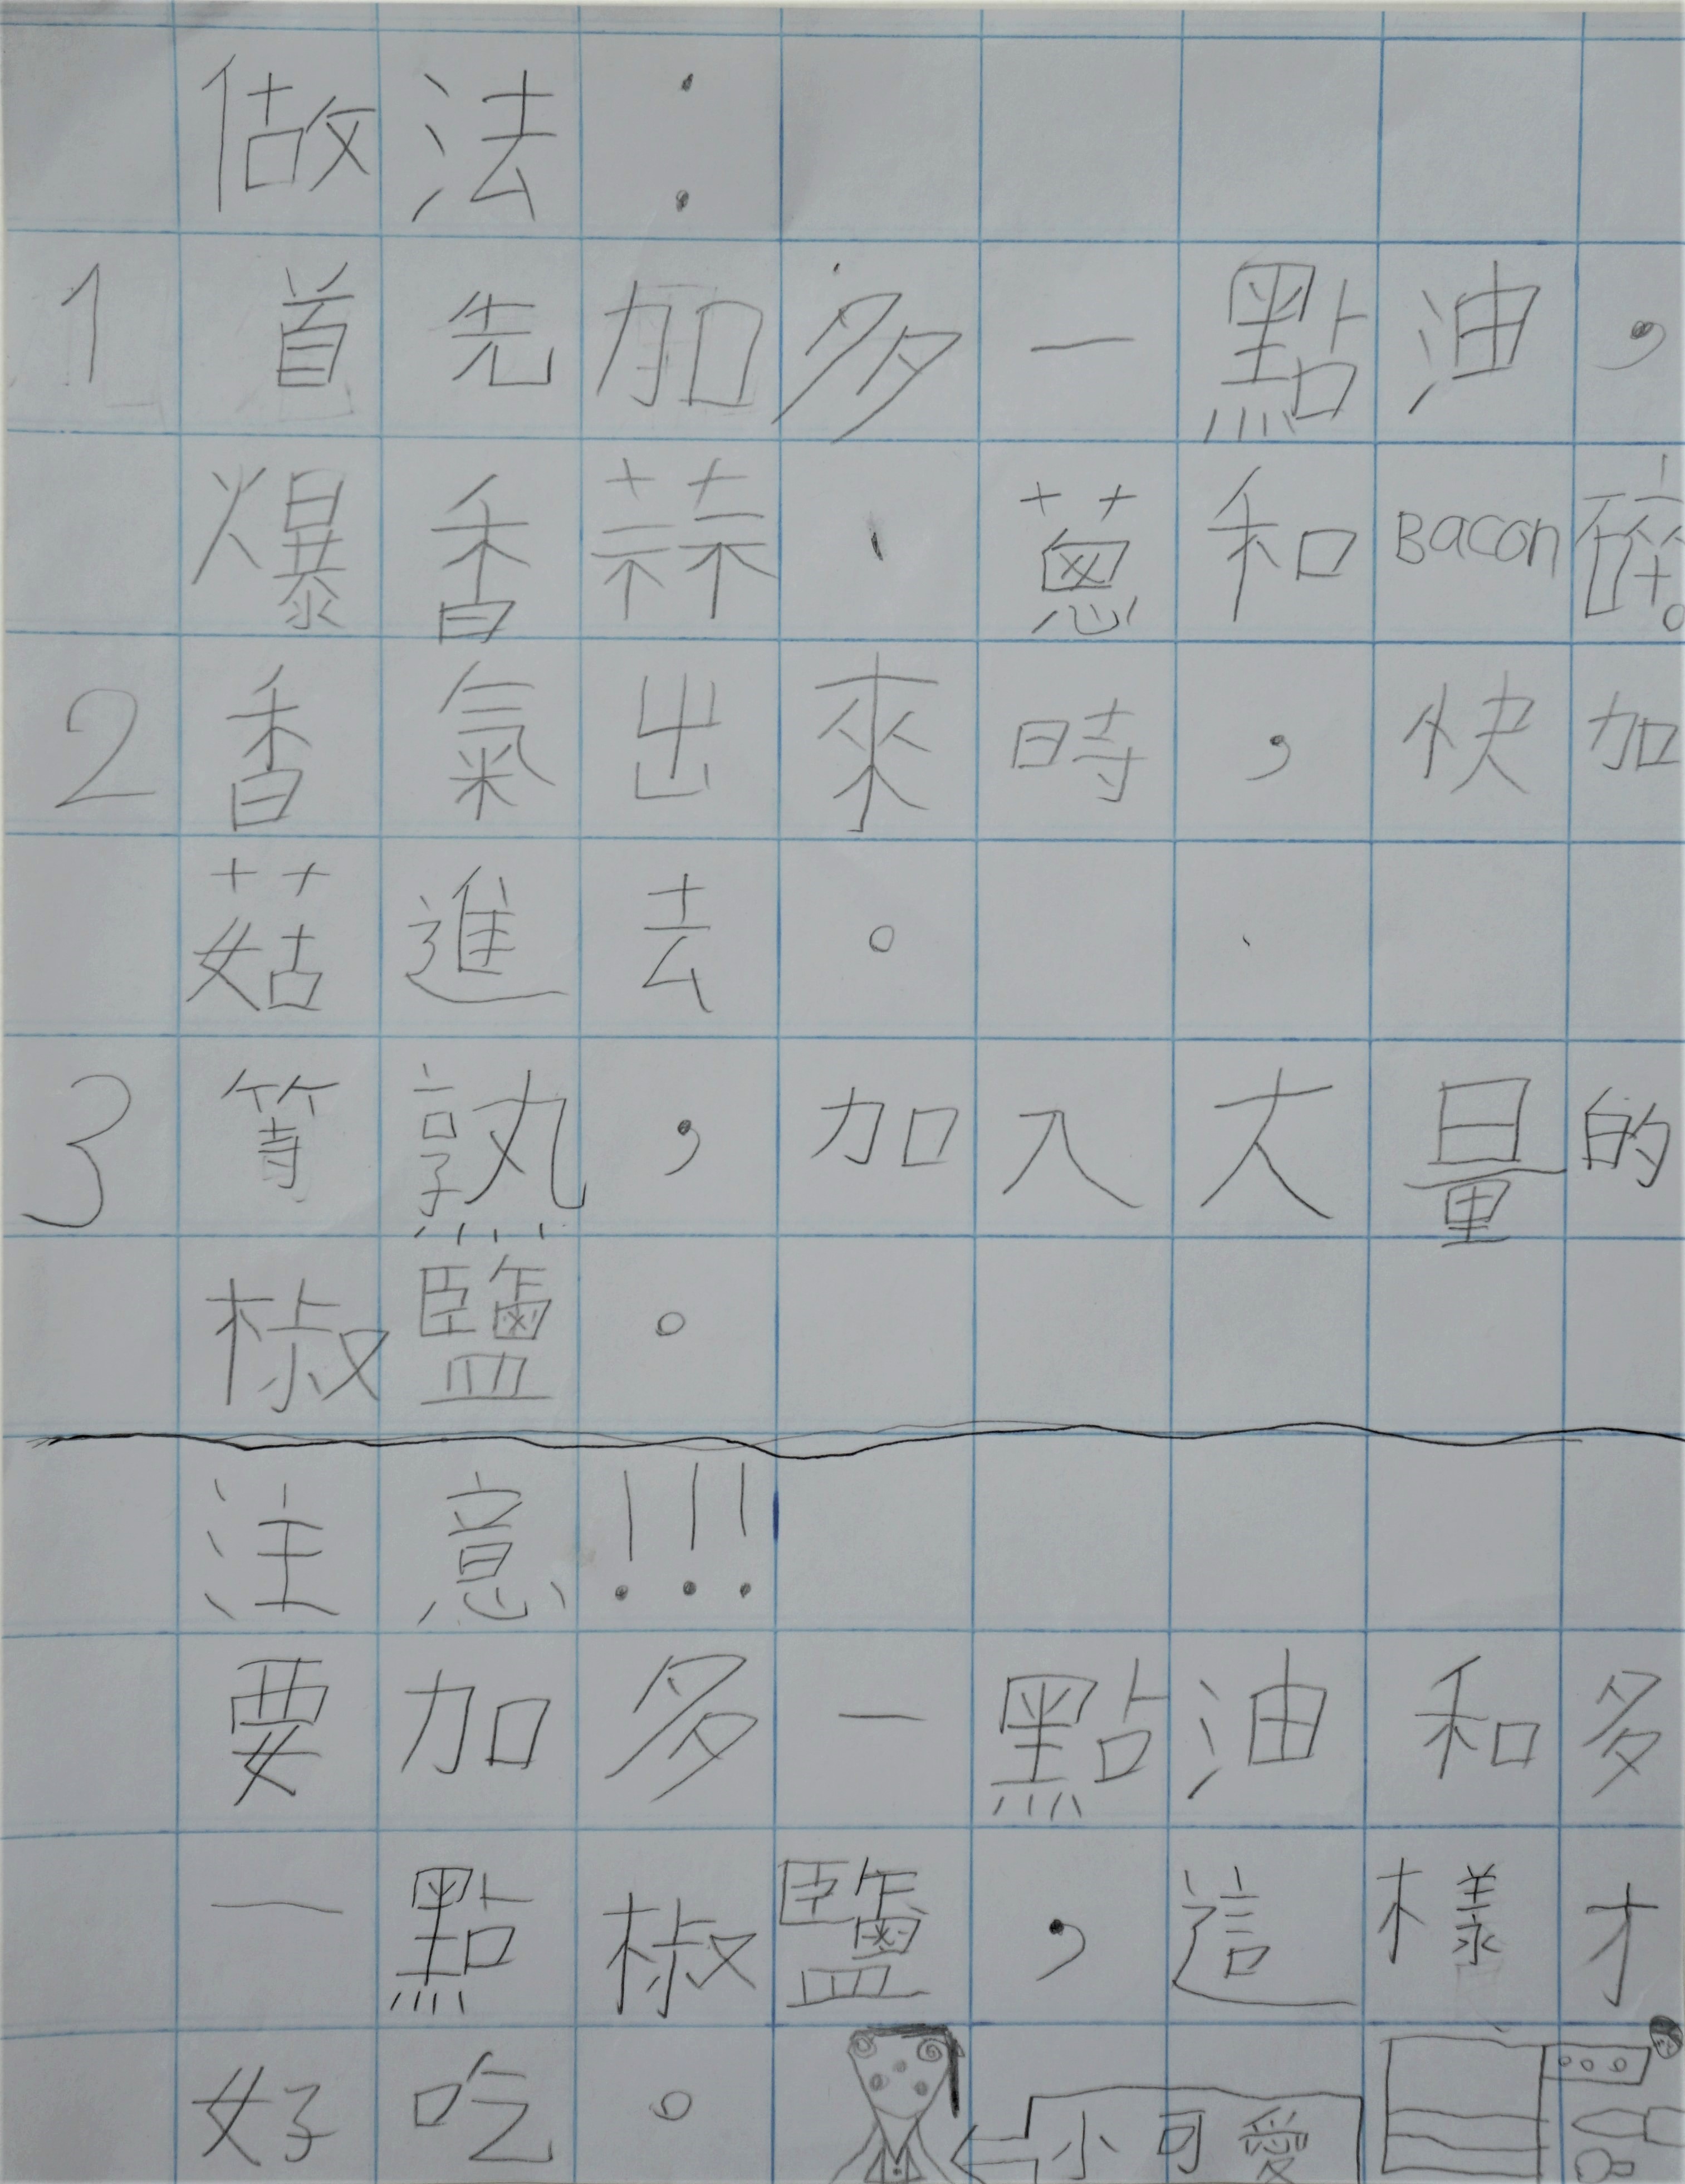 做法：
1 首先加多一點油，
爆香蒜、蔥和Bacon碎。
2 香氣出來時，快加
菇進去。
3 等熟，加入大量的
椒鹽。
注意!!!
要加多一點油和多
一點椒鹽，這樣才
好吃。
小可愛